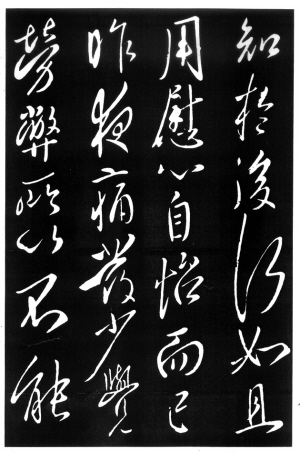 知後行如且
用慰心自而已
昨夜痛發少覺
勞弊所以不能